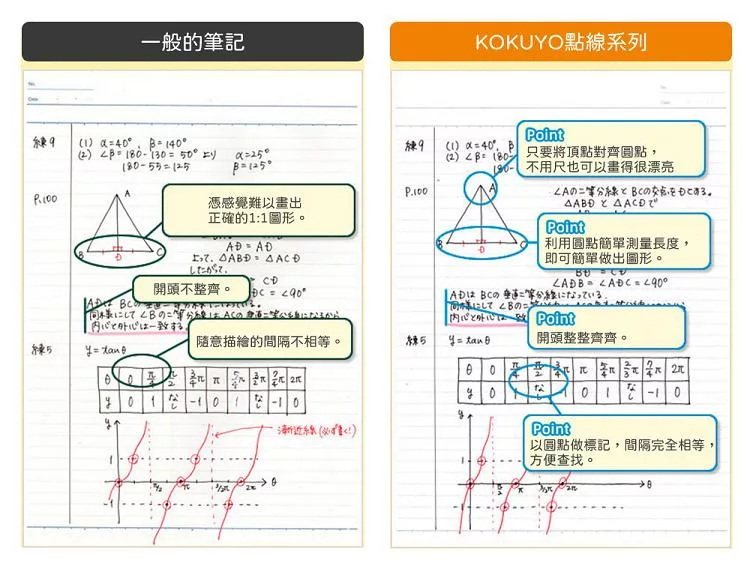 一般的筆記
No.
Date
練9
(1) α=40°, β=140°
(2) ∠β=180-130=50° より α=25°
180-55=125 β=125°
P.100
A
憑感覺難以畫出
正確的1:1圖形。
B D C
AD=AD
よって、△ABD=△ACD
したがって、
=CD
DC=∠90°
開頭不整齊。
ADは BCの垂直二等分線になっている。
同様にして ∠Bの二等分線は ACの垂直二等分線になるから
内心と外心は一致する
隨意描繪的間隔不相等。
練5 y=tanθ
θ 0 π/4 π/2 3/4π π 5/4π 3/2π 7/4π 2π
y 0 1 なし -1 0 1 なし -1 0
y
漸近線(必ず書く!)
1
0 π/2 π 3/2π 2π θ
-1
KOKUYO點線系列
No.
Date
練9
(1) α=40°,
(2) ∠β=180
180-
Point
只要將頂點對齊圓點，
不用尺也可以畫得很漂亮
P.100
A
∠Aの二等分線と BCの交点をDとする。
△ABDと△ACDで
Point
利用圓點簡單測量長度，
即可簡單做出圖形。
B D C
BD=CD
∠ADB=∠ADC=∠90°
ADは BCの垂直二等分線になっている。
同様にして ∠Bの二等分
内心と外心は一致
Point
開頭整整齊齊。
練5 y=tanθ
θ 0 π/4 π/2 3/4π π 5/4π 3/2π 7/4π 2π
y 0 1 なし -1 0 1 なし -1 0
Point
以圓點做標記，間隔完全相等，
方便查找。
y
1
0 π/2 π 3/2π 2π θ
-1